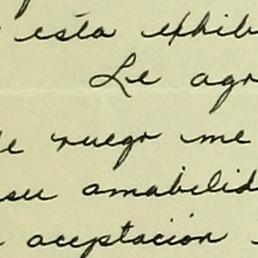 esta exhib
Le agr
le ruego me
su amabilid
aceptación